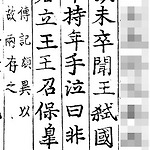 未卒聞王弒國
持年手泣曰非
立王王召保皐
傳記頗異以
故兩存之